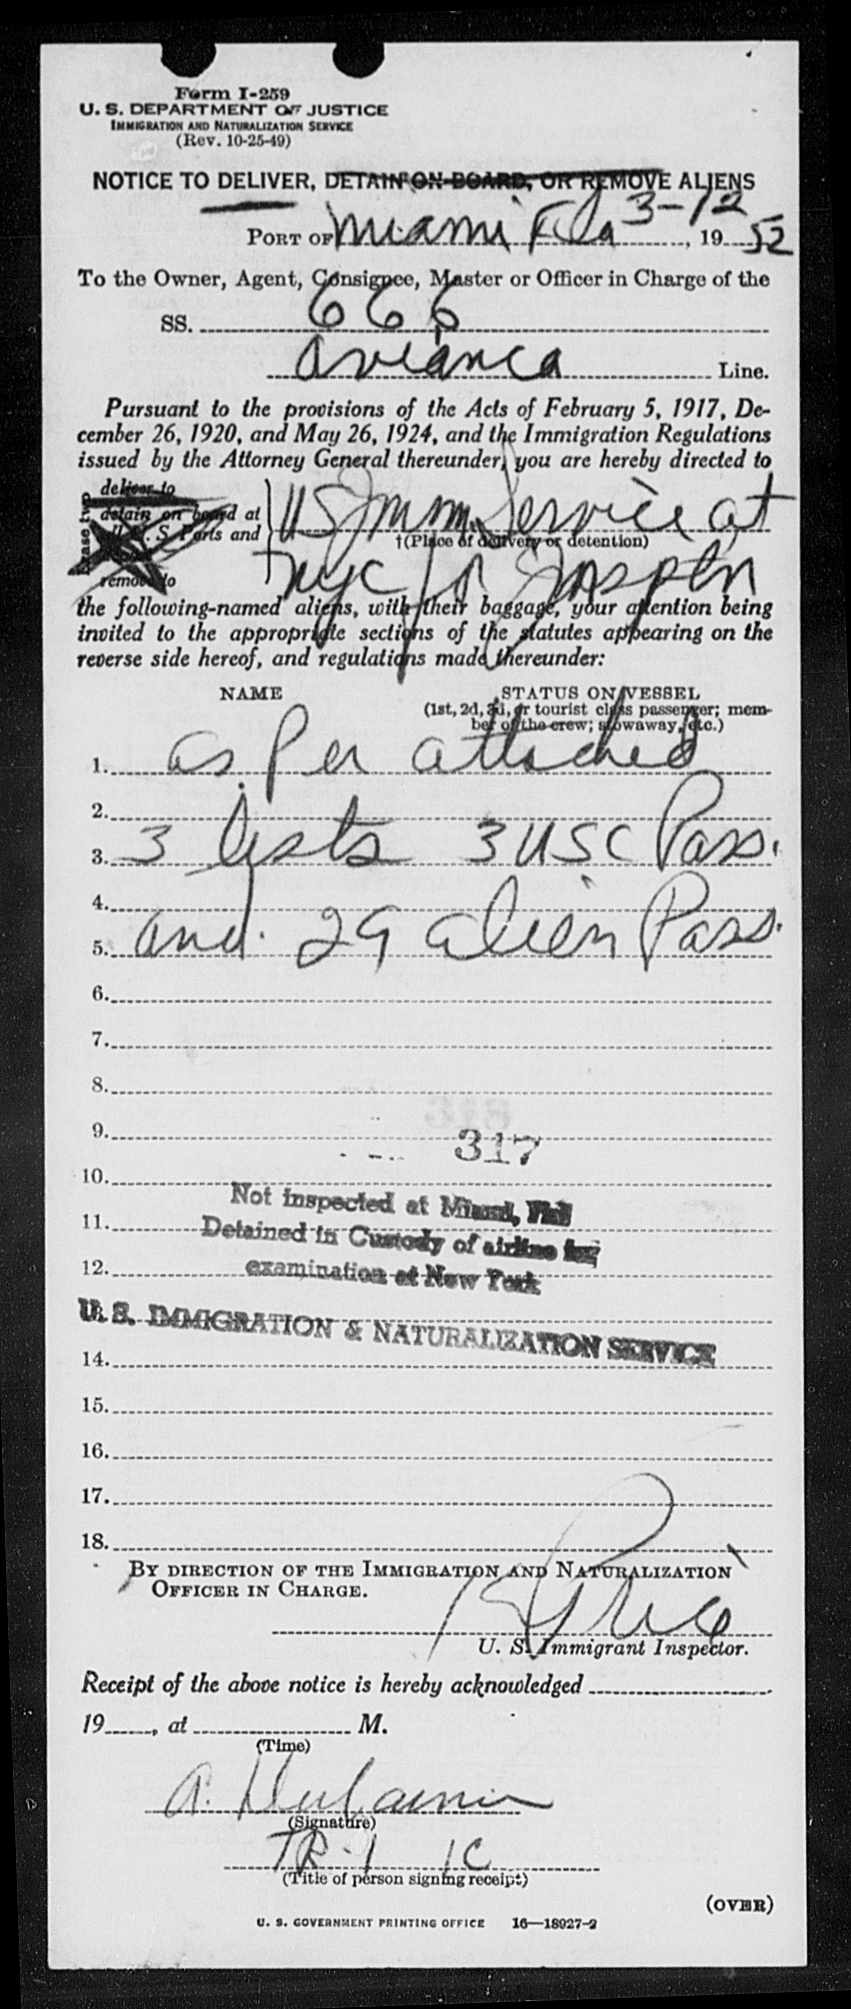 Form I-259
U. S. DEPARTMENT OF JUSTICE
IMMIGRATION AND NATURALIZATION SERVICE
(Rev. 10-25-49)
NOTICE TO DELIVER, DETAIN ON BOARD, OR REMOVE ALIENS
PORT OF Miami Fla 3-12, 19 52
To the Owner, Agent, Consignee, Master or Officer in Charge of the
SS. 666
Avianca Line.
Pursuant to the provisions of the Acts of February 5, 1917, De-
cember 26, 1920, and May 26, 1924, and the Immigration Regulations
issued by the Attorney General thereunder, you are hereby directed to
deliver to
detain on board at
U. S. Ports and
remove to
US Imm. Service at
†(Place of delivery or detention)
NYC for Insptn
the following-named aliens, with their baggage, your attention being
invited to the appropriate sections of the statutes appearing on the
reverse side hereof, and regulations made thereunder:
NAME STATUS ON VESSEL
(1st, 2d, 3d, or tourist class passenger; mem-
ber of the crew; stowaway, etc.)
1. as per attached
2.
3. 3 lists 3 USC Pass.
4.
5. and 29 alien Pass.
6.
7.
8.
9. 317
10.
Not inspected at Miami, Fla
11. Detained in Custody of airline for
12. examination at New York
U. S. IMMIGRATION & NATURALIZATION SERVICE
14.
15.
16.
17.
18.
BY DIRECTION OF THE IMMIGRATION AND NATURALIZATION
OFFICER IN CHARGE.
U. S. Immigrant Inspector.
Receipt of the above notice is hereby acknowledged
19 , at M.
(Time)
A.
(Signature)
(Title of person signing receipt)
(OVER)
U. S. GOVERNMENT PRINTING OFFICE 16—18927-2